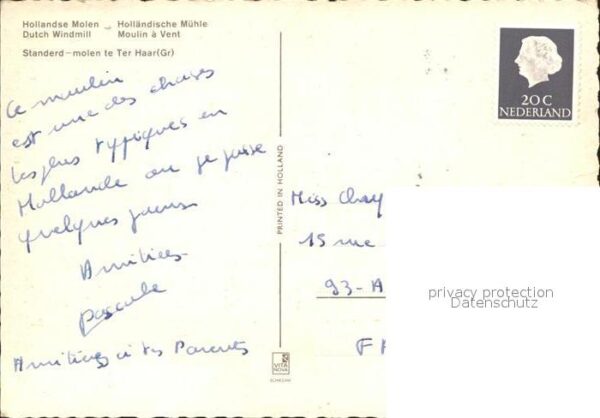 Hollandse Molen - Holländische Mühle
Dutch Windmill Moulin à Vent
Standerd-molen te Ter Haar(Gr)
20 C
NEDERLAND
Ce moulin
est une des choses
les plus typiques en
Hollande où je passe
quelques jours
Amitiés
Pascale
Amitiés à tes Parents
PRINTED IN HOLLAND
Miss Chay
15 rue
93-A
F
privacy protection
Datenschutz
VITA
NOVA